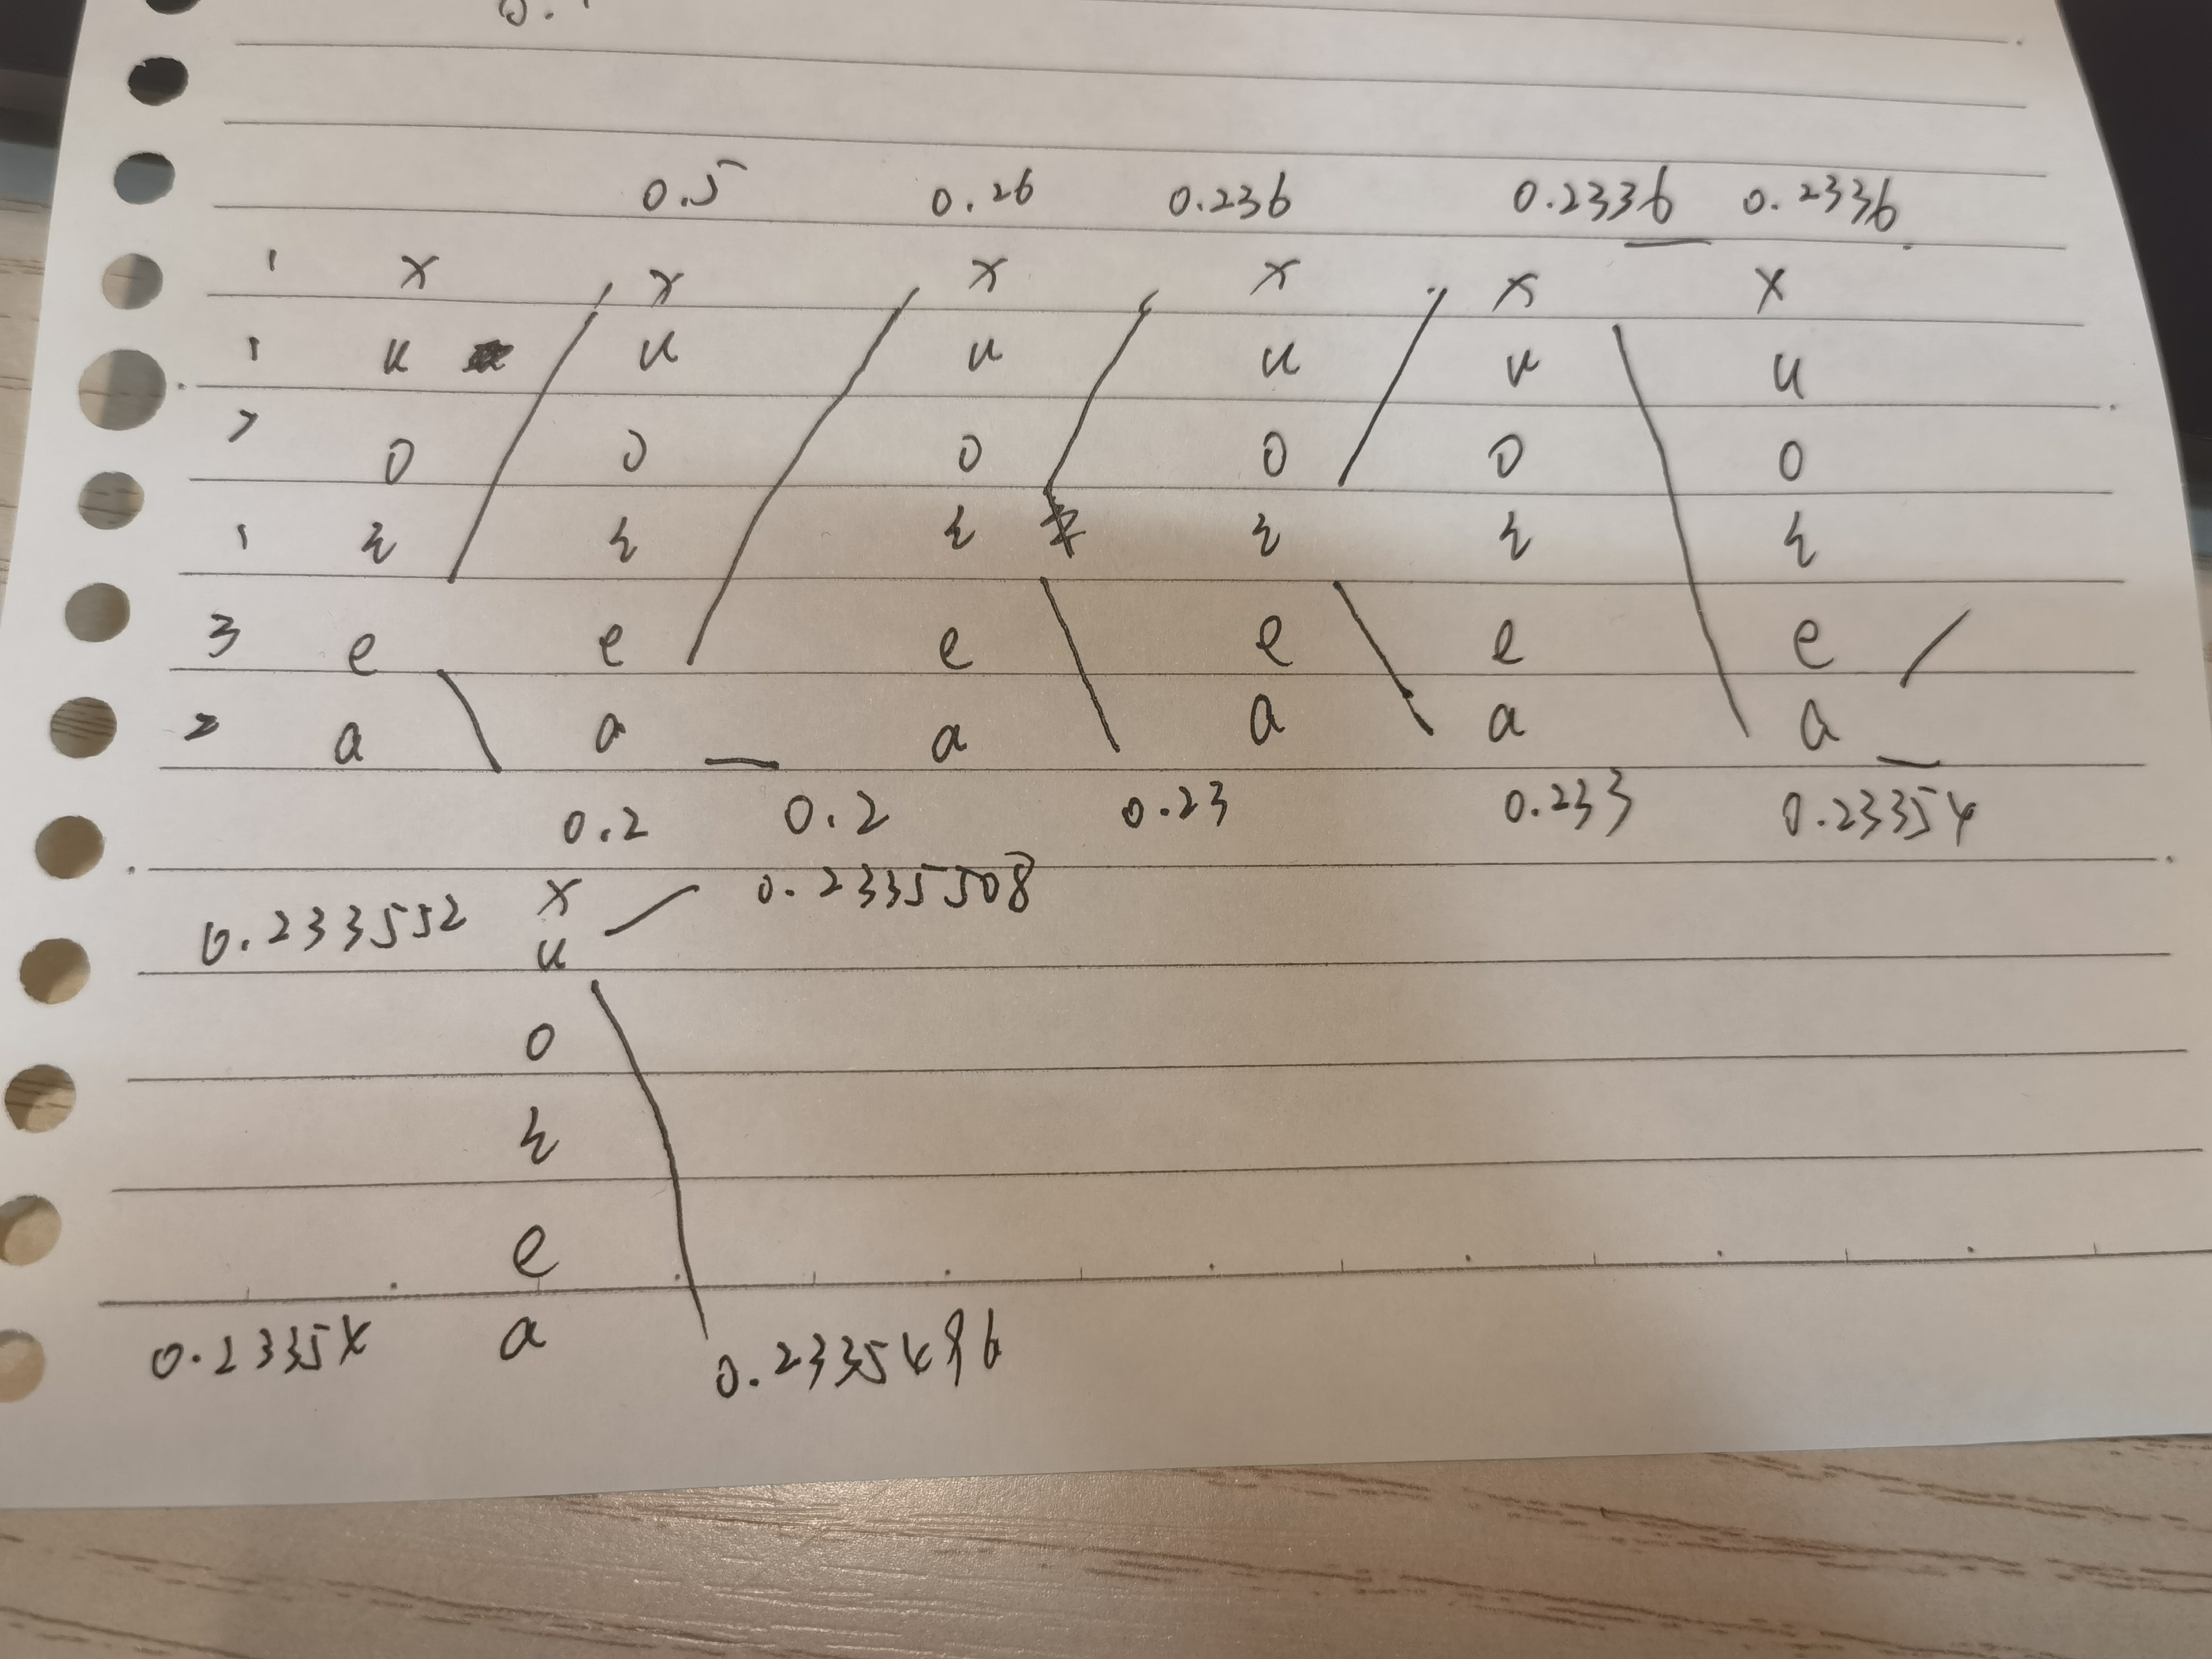 0.5 0.26 0.236 0.2336 0.2336
1 x x x x x x
1 u u u u u u
2 0 0 0 0 0 0
1 i i i i i i
3 e e e e e e
2 a a a a a a
0.2 0.2 0.23 0.233 0.23354
0.233552 x 0.2335508
u
0
i
e
0.23354 a 0.2335496